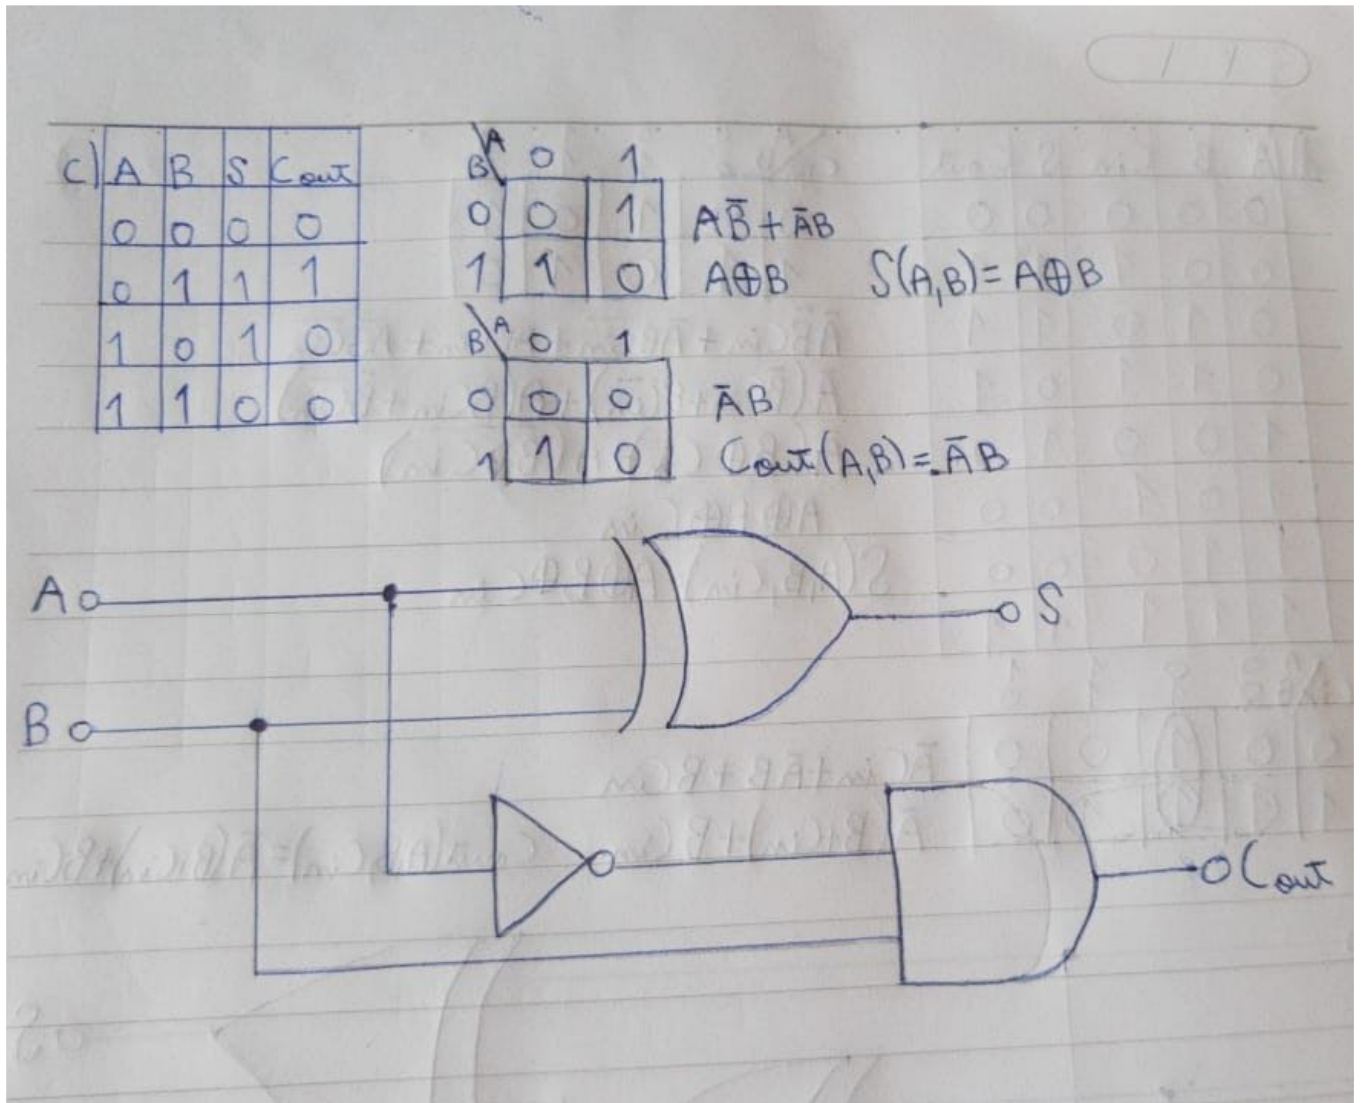 C) A B S Cout
0 0 0 0
0 1 1 1
1 0 1 0
1 1 0 0
B\A 0 1
0 0 1 AB̅ + A̅B
1 1 0 A⊕B S(A,B) = A⊕B
B\A 0 1
0 0 0 A̅B
1 1 0 Cout(A,B) = A̅B
A S
B
Cout